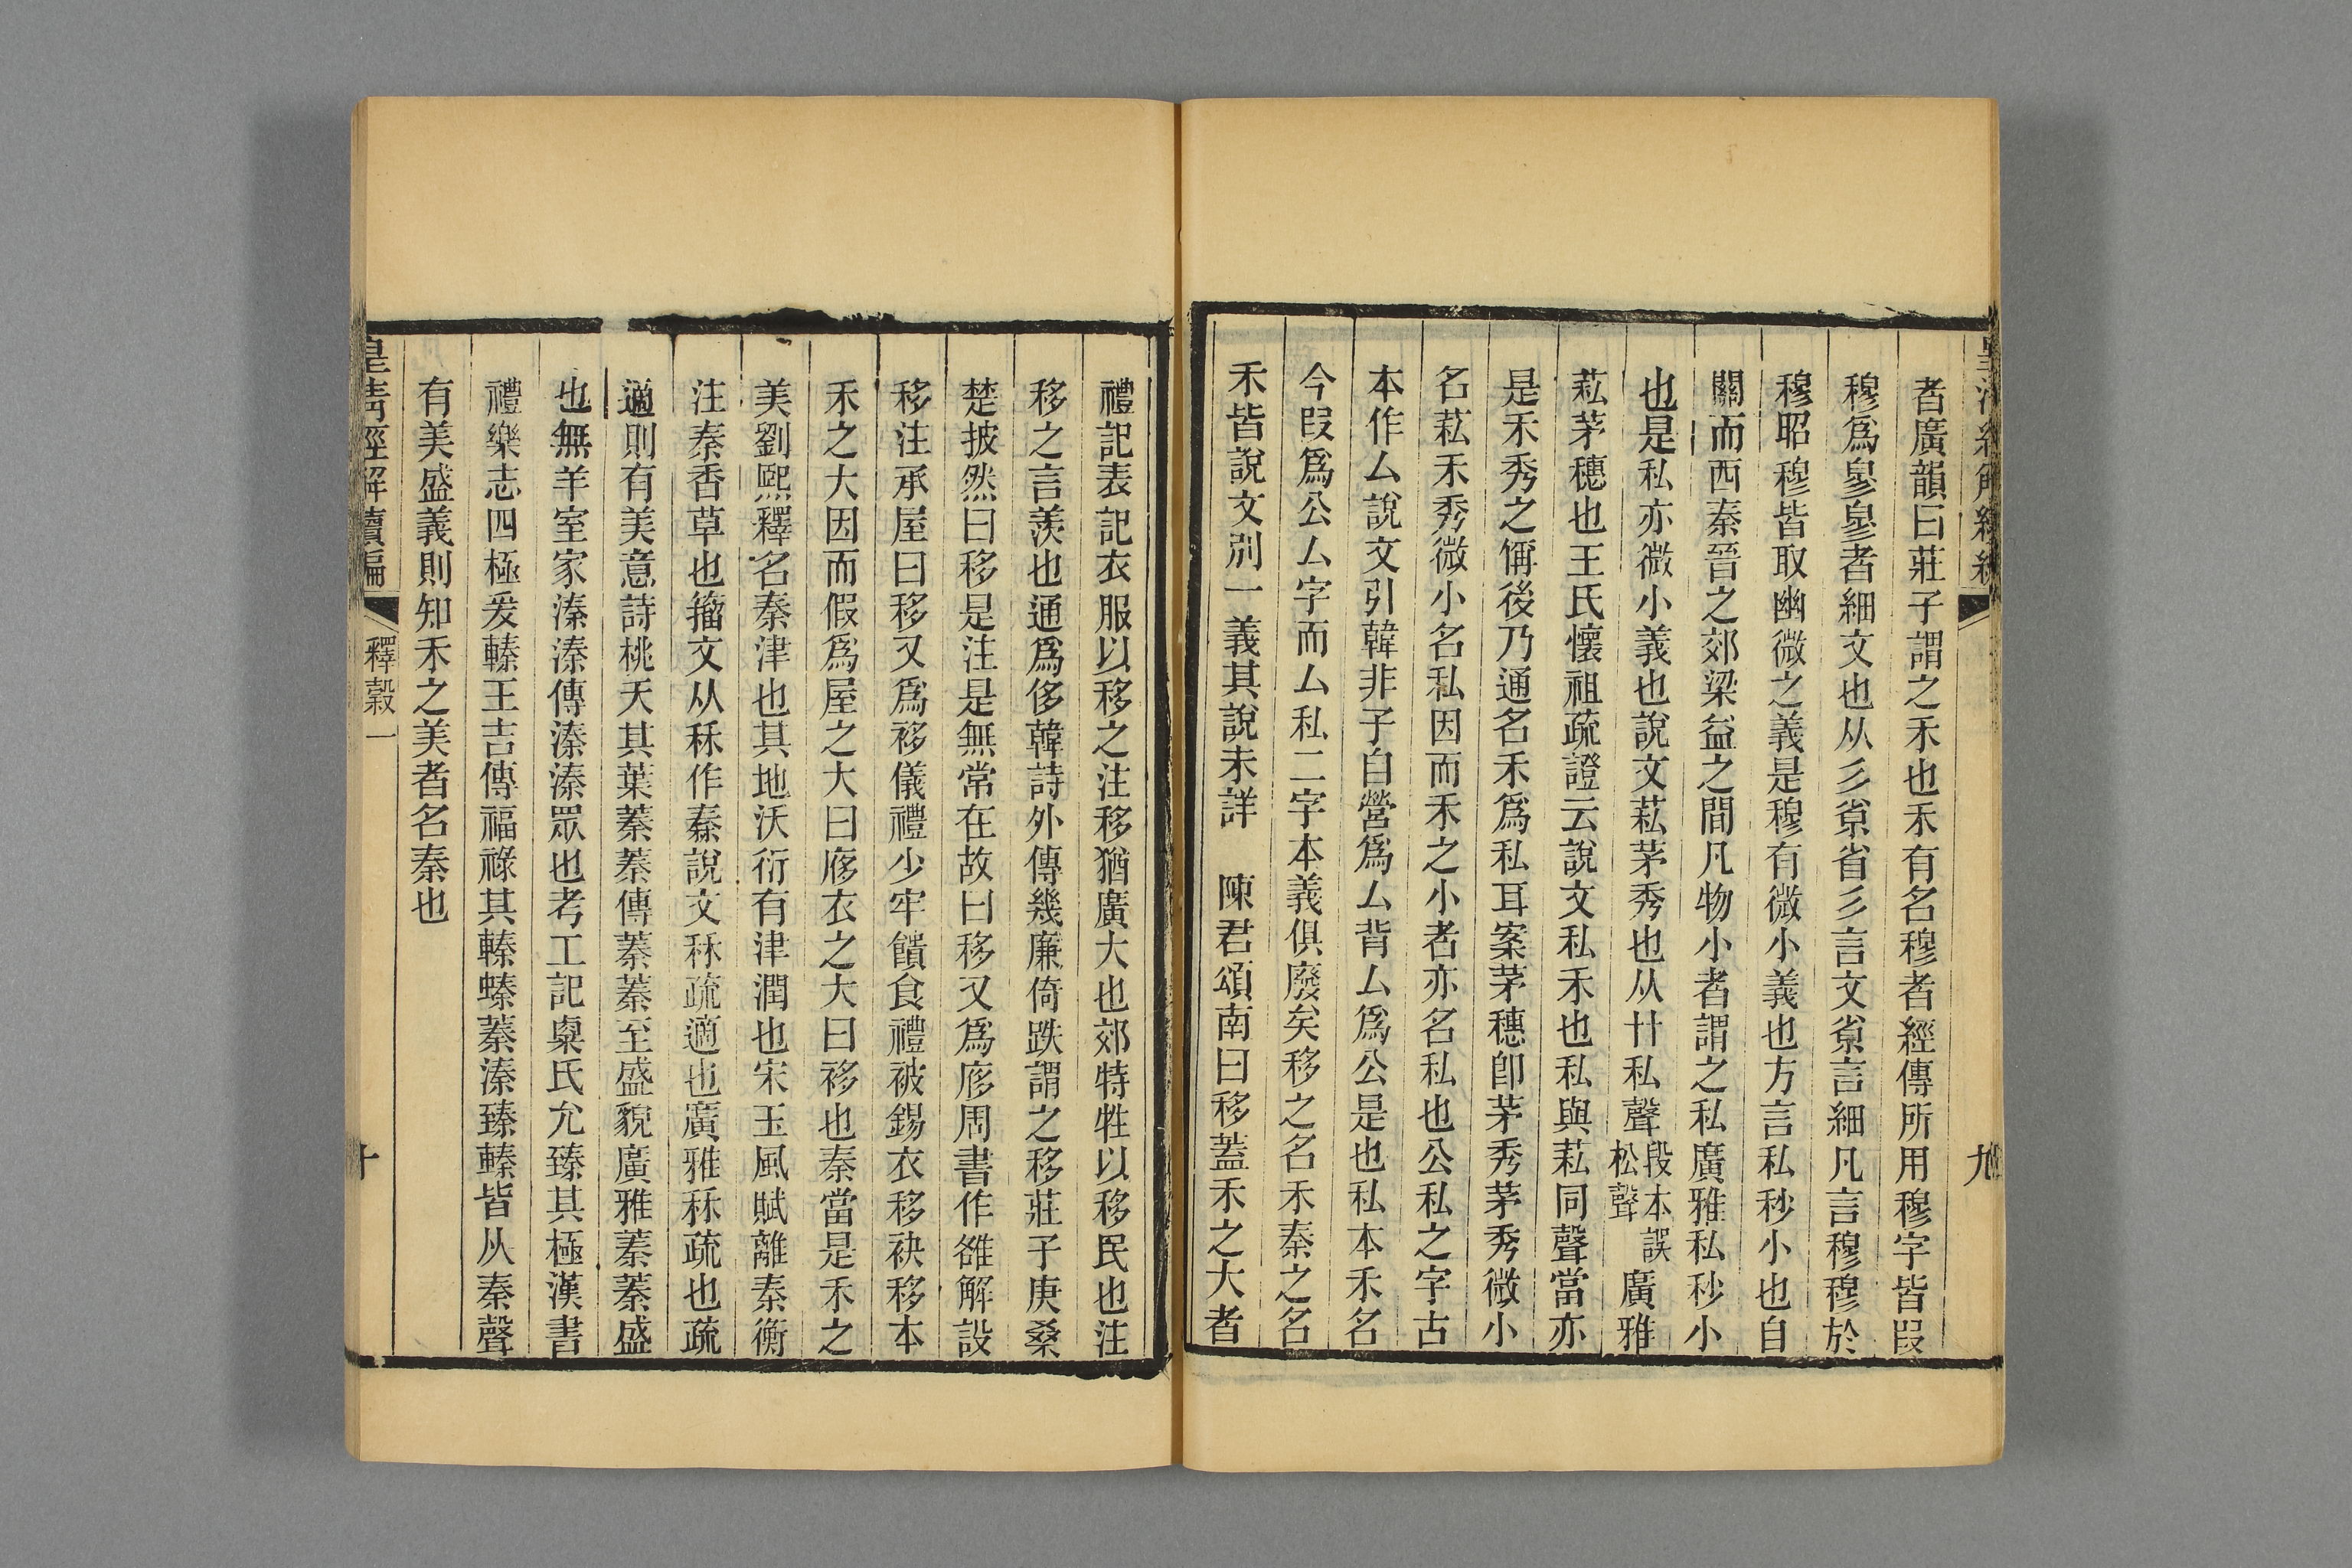 者廣韻曰莊子謂之禾也禾有名穆者經傳所用穆字皆叚
穆爲㣎㣎者細文也从彡㡭省省彡言文㡭言細凡言穆穆於
穆昭穆皆取幽微之義是穆有微小義也方言私秒小也自
關而西秦晉之郊梁益之間凡物小者謂之私廣雅私秒小
也是私亦微小義也說文䒠茅秀也从艸私聲段本誤松聲廣雅
䒠茅穗也王氏懷祖疏證云說文私禾也私與䒠同聲當亦
是禾秀之偁後乃通名禾爲私耳案茅穗卽茅秀茅秀微小
名䒠禾秀微小名私因而禾之小者亦名私也公私之字古
本作厶說文引韓非子自營爲厶背厶爲公是也私本禾名
今叚爲公厶字而厶私二字本義俱廢矣移之名禾秦之名
禾皆說文別一義其說未詳 陳君頌南曰移蓋禾之大者
禮記表記衣服以移之注移猶廣大也郊特牲以移民也注
移之言羨也通爲侈韓詩外傳幾廉倚跌謂之移莊子庚桑
楚披然曰移是注是無常在故曰移又爲㢋周書作雒解設
移注承屋曰移又爲袳儀禮少牢饋食禮被錫衣移袂移本
禾之大因而假爲屋之大曰㢋衣之大曰袳也秦當是禾之
美劉熙釋名秦津也其地沃衍有津潤也宋玉風賦離秦衡
注秦香草也籒文从秝作𥢮說文秝疏適也廣雅秝疏也疏
適則有美意詩桃夭其葉蓁蓁傳蓁蓁至盛貌廣雅蓁蓁盛
也無羊室家溱溱傳溱溱眾也考工記㮚氏允臻其極漢書
禮樂志四極爰轃王吉傳福祿其轃螓蓁溱臻轃皆从秦聲
有美盛義則知禾之美者名秦也
皇清經解續編
釋穀一
十
九